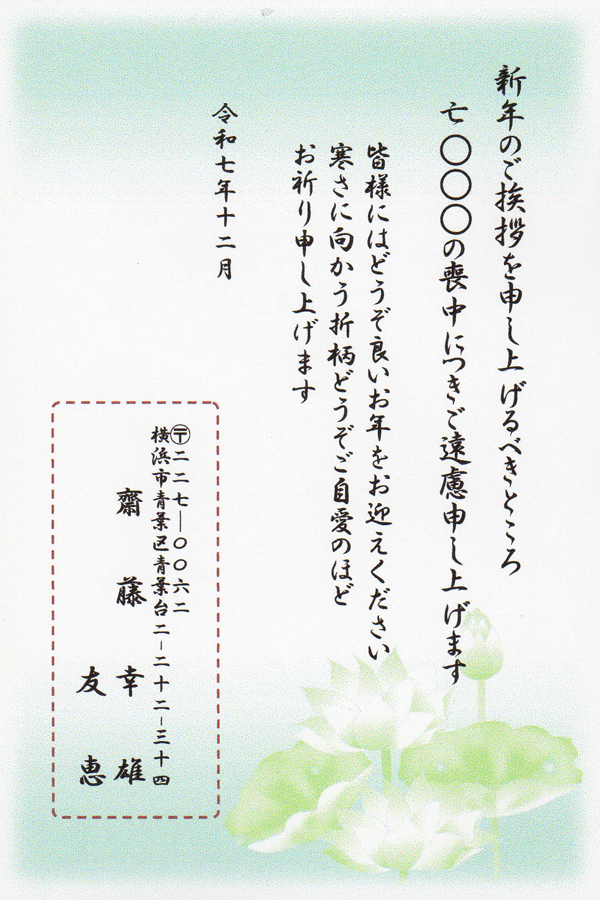 新年のご挨拶を申し上げるべきところ
亡〇〇〇の喪中につきご遠慮申し上げます
皆様にはどうぞ良いお年をお迎えください
寒さに向かう折柄どうぞご自愛のほど
お祈り申し上げます
令和七年十二月
〶二二七―〇〇六二
横浜市青葉区青葉台二―二十二―三十四
齋藤幸雄
友恵